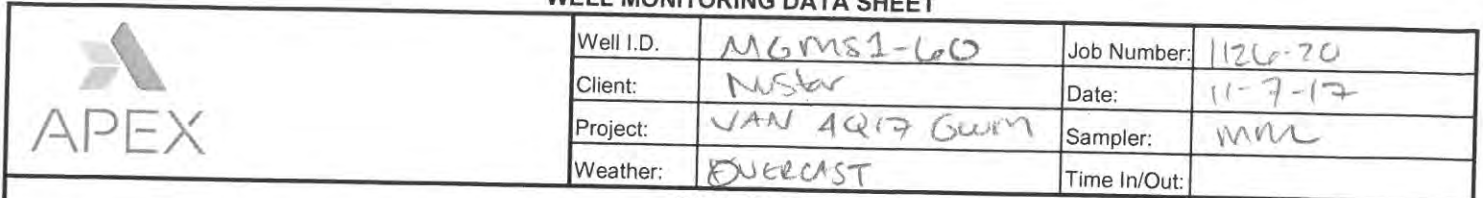 WELL MONITORING DATA SHEET
APEX
Well I.D. MGMS1-60 Job Number: 1126-20
Client: NuStar Date: 11-7-17
Project: VAN 4Q17 GWM Sampler: MML
Weather: OVERCAST Time In/Out: